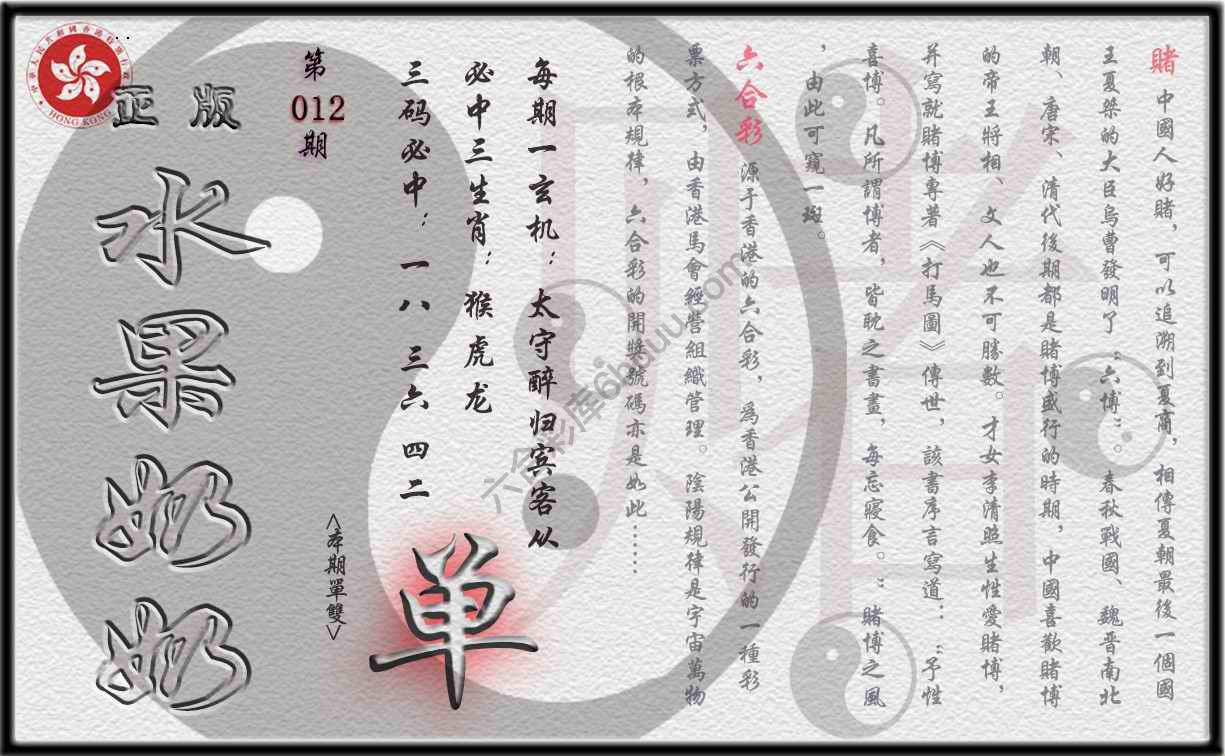 正版
水果奶奶
第012期
每期一玄机：太守醉归宾客似
必中三生肖：猴虎龙
三码必中：一八 三六 四二
<本期單雙>
单
賭 中國人好賭，可以追溯到夏商，相傳夏朝最後一個國
王夏桀的大臣烏曹發明了“六博”。春秋戰國、魏晋南北
朝、唐宋、清代後期都是賭博盛行的時期，中國喜歡賭博
的帝王將相、文人也不可勝數。才女李清照生性愛賭博，
并寫就賭博專著《打馬圖》傳世，該書序言寫道：：“予性
喜博。凡所謂博者，皆耽之書晝，每忘寢食。”賭博之風
，由此可窺一斑。
六合彩 源于香港的六合彩，爲香港公開發行的一種彩
票方式，由香港馬會經營組織管理。陰陽規律是宇宙萬物
的根本規律，六合彩的開獎號碼亦是如此……
中華人民共和國香港特別行政區
HONG KONG
賭
六合彩库6huuu.com